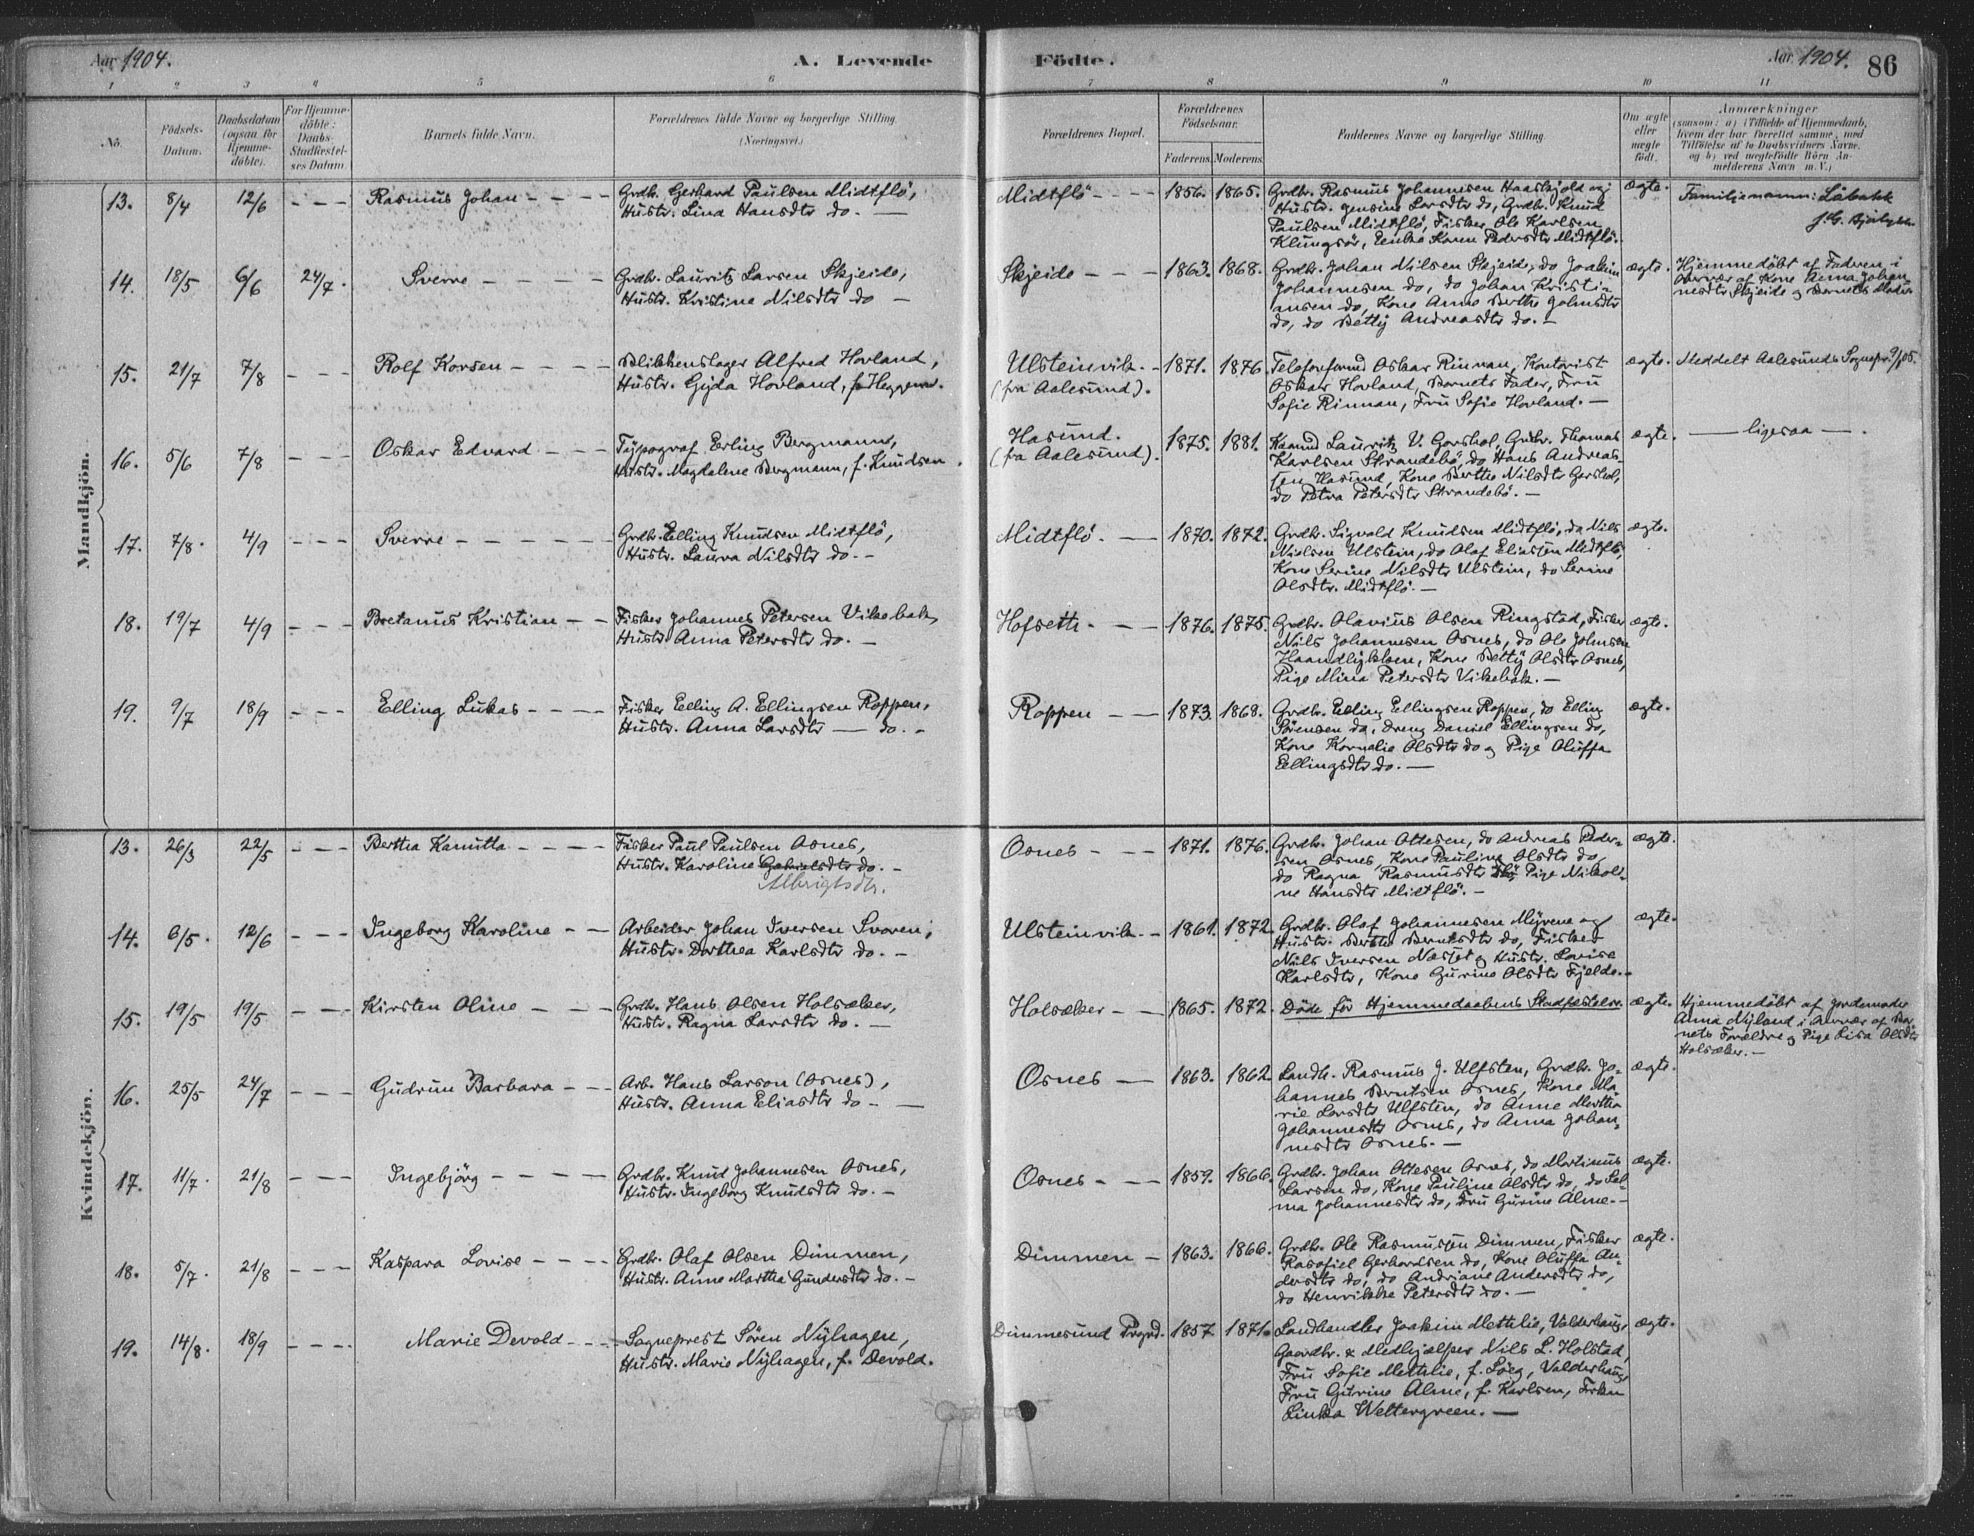 Aar 1904.
A. Levende
Födte.
Aar 1904.
86
1 2 3 4 5 6 7 8 9 10 11
No.
Födsels-
Datum.
Daabsdatum
(ogsaa for
Hjemme-
döbte).
For Hjemme-
döbte:
Daabs-
Stadfæstel-
ses Datum.
Barnets fulde Navn.
Forældrenes fulde Navne og borgerlige Stilling.
(Næringsvei.)
Forældrenes Bopæl.
Forældrenes
Födselsaar.
Faderens. Moderens.
Faddernes Navne og borgerlige Stilling.
Om ægte
eller
uægte
födt.
Anmærkninger
(saasom: a) i Tilfælde af Hjemmedaab,
hvem der har forrettet samme, med
Tilföielse af to Daabsvidners Navne,
og b) ved uægtefödte Börn An-
melderens Navn m. V.)
Mandkjön.
13. 8/4 12/6 - - - Rasmus Johan - - - -
Grdbr. Gerhard Paulsen Midtflö,
Hustr. Lina Hansdtr do. —
Midtflö - - - 1856. 1865.
Grdbr. Rasmus Johannesen Haaskjold og
Hustr. Jensine Larsdtr do, Grdbr. Knud
Paulsen Midtflö, Fisker Ole Karlsen
Klungsör, Enke Karen Pedersdtr Midtflö.
ægte.
Familienavn:
14. 18/5 6/6 24/7. Sverre - - - -
Grdbr. Lauritz Larsen Skjeide,
Hustr. Kristine Nilsdtr do —
Skjeide - - - 1863. 1868.
Grdbr. Johan Nilsen Skjeide, do Joakim
Johannesen do, do Johan Kristi-
ansen do, Kone Anne Berthe Johnsdtr
do, do Betty Andreasdtr do. —
ægte.
Hjemmedöbt af Faderen i
Nærvær af Kone Anna Johan-
nesdtr Skjeide og Barnets Moder.
15. 21/7 7/8 - - - Rolf Korsen - - - -
Blikkenslager Alfred Hovland,
Hustr. Gyda Hovland, f. Heggem.
Ulsteinvik. -
(fra Aalesund).
1871. 1876
Telefonformd Oskar Rinnan, Kontorist
Oskar Hovland, Barnets Fader, Fru
Sofie Rinnan, Fru Sofie Hovland. —
ægte. Meddelt Aalesunds Sognepr. 9/1 05.
16. 5/6 7/8 - - - Oskar Edvard - - -
Typograf Erling Bergmann,
Hustr. Magdalene Bergmann, f. Knudsen.
Hasund.
(fra Aalesund).
1875. 1881.
Kaamd Lauritz V. Garshol, Grdbr. Thomas
Karlsen Strandebö, do Hans Andreas-
sen Hasund, Kone Berthe Nilsdtr Garshol,
do Petra Petersdtr Strandebö. —
ægte. — ligesaa — .
17. 7/8. 4/9 - - - Sverre - - - - -
Grdbr. Elling Knudsen Midtflö,
Hustr. Laura Nilsdtr do. —
Midtflö. — 1870. 1872.
Grdbr. Sigvald Knudsen Midtflö, do Nils
Nielsen Ulstein, do Olaf Eliassen Midtflö,
Kone Serine Nilsdtr Ulstein, do Serine
Olsdtr. Midtflö. —
ægte.
18. 19/7 4/9 - - - Bretanus Kristian - -
Fisker Johannes Petersen Vikebak,
Hustr. Anna Petersdtr do. —
Hofseth. - - 1876. 1875.
Grdbr. Olavius Olsen Ringstad, Fisker
Nils Johannesen Osnes, do Ole Johnsen
Haandlykken, Kone Betty Olsdtr Osnes,
Pige Mina Petersdtr Vikebak. —
ægte.
19. 9/7 18/9 - - - Elling Lukas - - - -
Fisker Elling A. Ellingsen Roppen,
Hustr. Anna Larsdtr — do. -
Roppen — — 1873. 1868.
Grdbr. Elling Ellingsen Roppen, do Elling
Sörensen do, Dreng Daniel Ellingsen do,
Kone Kornelie Olsdtr do og Pige Oluffa
Ellingsdtr do. —
ægte.
Kvindekjön.
13. 26/3 22/5 - - - Bertha Kanutta - - - -
Fisker Paul Paulsen Osnes,
Hustr. Karoline Gabrielsdtr do. -
Albrigtsdtr.
Osnes - - - 1871. 1876.
Grdbr. Johan Ottesen, do Andreas Peder-
sen Osnes, Kone Pauline Olsdtr do,
do Ragna Rasmusdtr do, Pige Nikoli-
ne Hansdtr Midtflö. —
ægte.
14. 6/5. 12/6 - - - Ingeborg Karoline - -
Arbeider Johan Iversen Svoren,
Hustr. Dorthea Karlsdtr do. —
Ulsteinvik. - 1861. 1872.
Grdbr. Olaf Johannesen Myrene og
Hustr. Berthe Berntsdtr do, Fisker
Nils Iversen og Hustr. Lovise
Karlsdtr, Kone Gurine Olsdtr Fjelde. -
ægte.
15. 19/5 19/5 - - - Kirsten Oline - - -
Grdbr. Hans Olsen Holsæker,
Hustr. Ragna Larsdtr do. —
Holsæker - - 1865. 1872.
Döde för Hjemmedaabens Stadfæstelse.
ægte.
Hjemmedöbt af Jordemoder
Anna Nyland i Nærvær af Bar-
nets Forældre og Pige Lisa Olsdtr
Holsæker. —
16. 25/5 24/7 - - - Gudrun Barbara - - -
Arb. Hans Larson (Osnes),
Hustr. Anna Eliasdtr do - —
Osnes — 1863. 1862.
Landh. Rasmus J. Ulfsten, Grdbr. Jo-
hannes Berntsen Osnes, Kone Ma-
rie Larsdtr Ulfsten, do Anne Martha
Johannesdtr Osnes, do Anna Johan-
nesdtr Osnes. —
ægte.
17. 11/7. 21/8 - - - Ingebjörg - - - -
Grdbr. Knud Johannesen Osnes,
Hustr. Ingeborg Knudsdtr do. -
Osnes - - - 1859. 1866.
Grdbr. Johan Ottesen Osnes, do Martinus
Larsen do, Kone Pauline Olsdtr do, do Sel-
ma Johannesdtr do, Fru Gurine Alme. -
ægte.
18. 5/7. 21/8 - - - Kaspara Lovise - - - -
Grdbr. Olaf Olsen Dimmen,
Hustr. Anne Martha Gundersdtr do. —
Dimmen — 1863. 1866.
Grdbr. Ole Rasmussen Dimmen, Fisker
Rasofiel Gerhardsen do, Kone Oluffa An-
dersdtr do, do Andriane Andersdtr do,
do Henrikke Petersdtr do. —
ægte.
19. 14/8. 18/9 - - - Marie Devold - - -
Sogneprest Sören Nyhagen,
Hustr. Marie Nyhagen, f. Devold.
Dimmesund Prgrd. 1857 1871.
Landhandler Joakim Mettelie, Valderhaug,
Gaardbr. & Medhjælper Nils L. Holstad,
Fru Sofie Mettelie, f. Löeg, Valderhaug,
Fru Gurine Alme, f. Karlsen, Fröken
Linka Weltergreen. —
ægte.